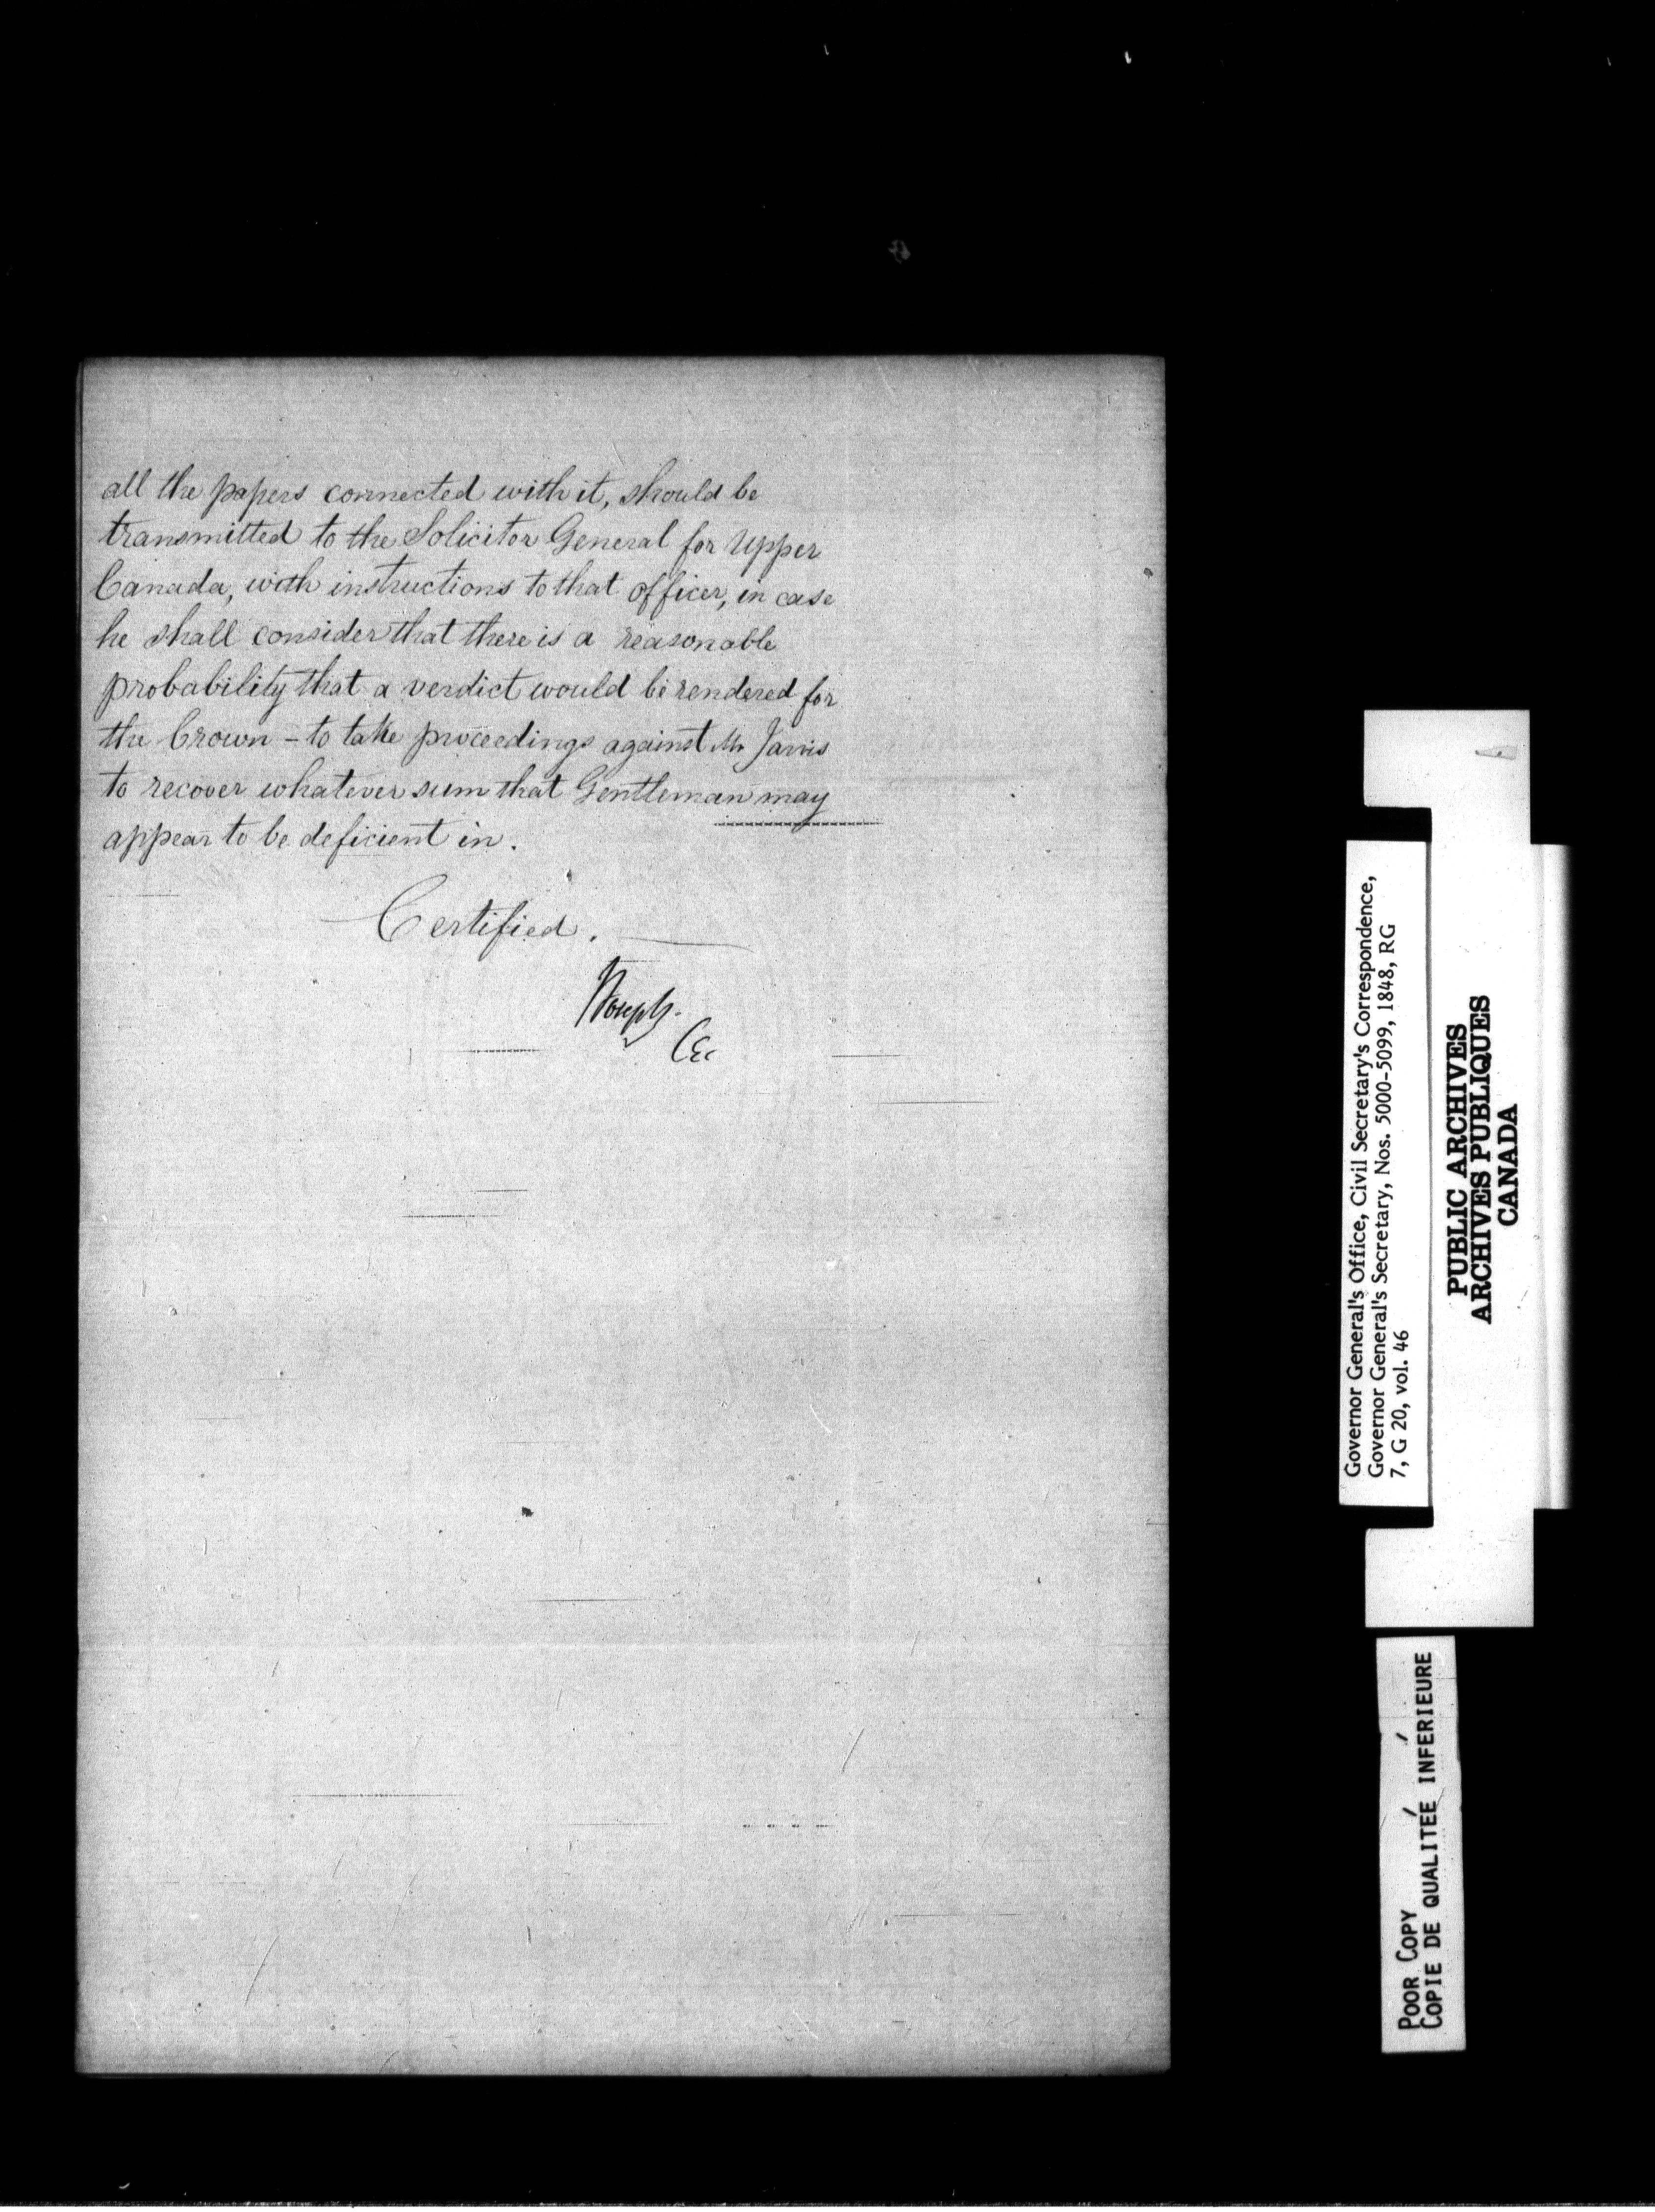 all the papers connected with it, should be
transmitted to the Solicitor General for Upper
Canada, with instructions to that officer, in case
he shall consider that there is a reasonable
probability that a verdict would be rendered for
the Crown – to take proceedings against Mr Jarvis
to recover whatever sum that Gentleman may
appear to be deficient in.
Certified.
Governor General's Office, Civil Secretary's Correspondence,
Governor General's Secretary, Nos. 5000-5099, 1848, RG
7, G 20, vol. 46
PUBLIC ARCHIVES
ARCHIVES PUBLIQUES
CANADA
POOR COPY
COPIE DE QUALITEÉ INFÉRIEURE